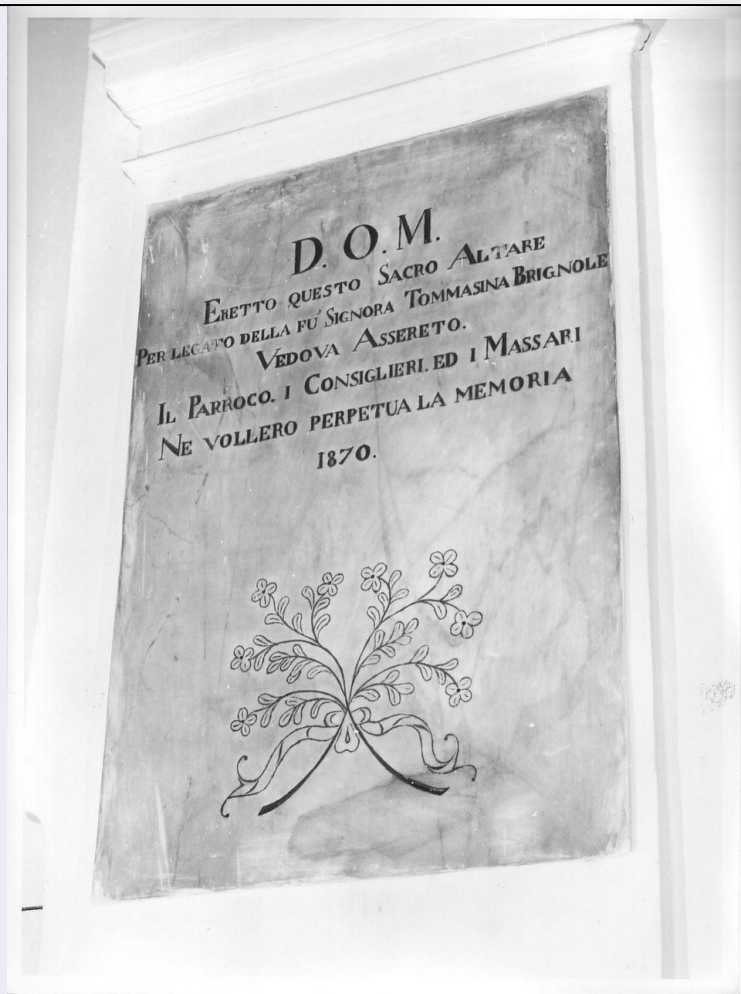 D. O. M.
ERETTO QUESTO SACRO ALTARE
PER LEGATO DELLA FU' SIGNORA TOMMASINA BRIGNOLE
VEDOVA ASSERETO.
IL PARROCO. I CONSIGLIERI. ED I MASSARI
NE VOLLERO PERPETUA LA MEMORIA
1870.